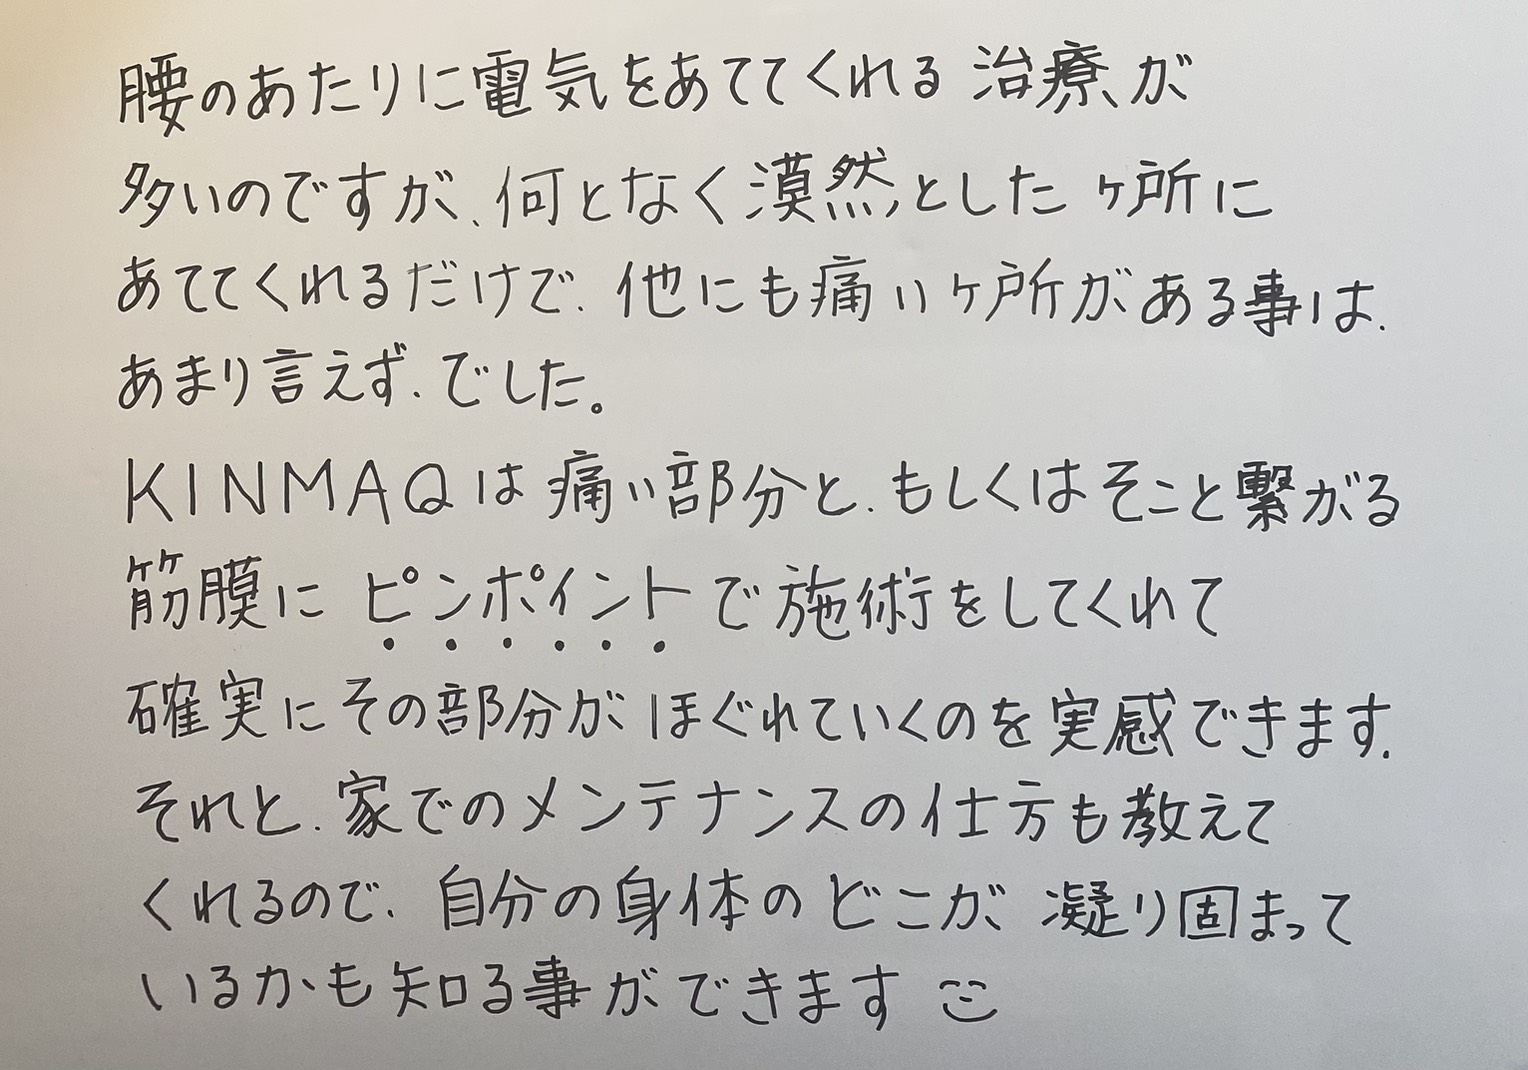 腰のあたりに電気をあててくれる治療が
多いのですが、何となく漠然としたヶ所に
あててくれるだけで、他にも痛いヶ所がある事は、
あまり言えず、でした。
KINMAQは痛い部分と、もしくはそこと繋がる
筋膜にピンポイントで施術をしてくれて
確実にその部分がほぐれていくのを実感できます。
それと、家でのメンテナンスの仕方も教えて
くれるので、自分の身体のどこが凝り固まって
いるかも知る事ができます